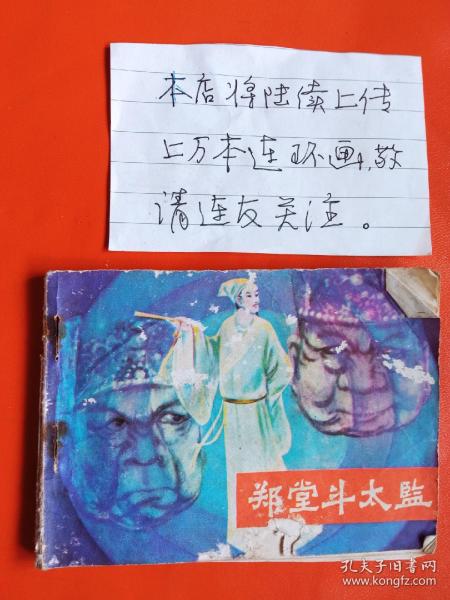 本店将陆续上传
上万本连环画,敬
请连友关注。
郑堂斗太監
孔夫子旧书网
www.kongfz.com